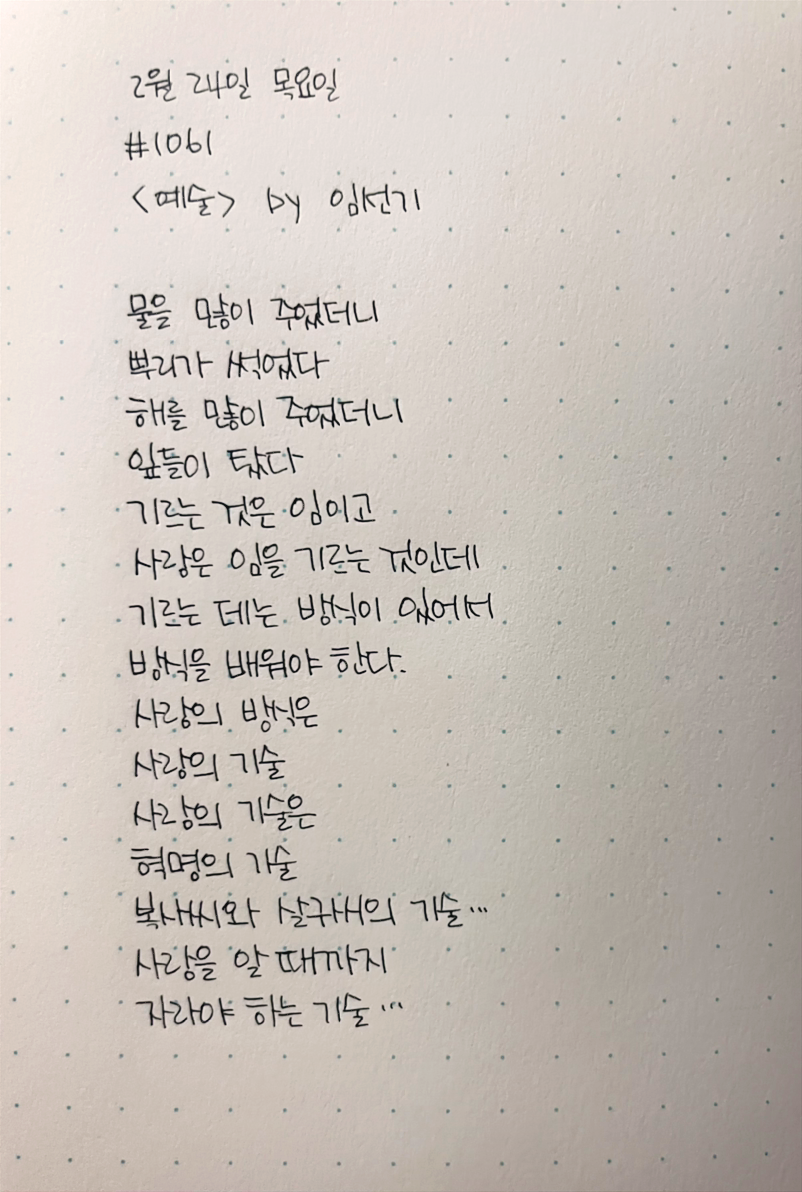 2월 24일 목요일
#1061
<예술> by 임선기
물을 많이 주었더니
뿌리가 썩었다
해를 많이 주었더니
잎들이 탔다
기르는 것은 임이고
사랑은 임을 기르는 것인데
기르는 데는 방식이 있어서
방식을 배워야 한다.
사랑의 방식은
사랑의 기술
사랑의 기술은
혁명의 기술
복사씨와 살구씨의 기술…
사랑을 알 때까지
자라야 하는 기술…